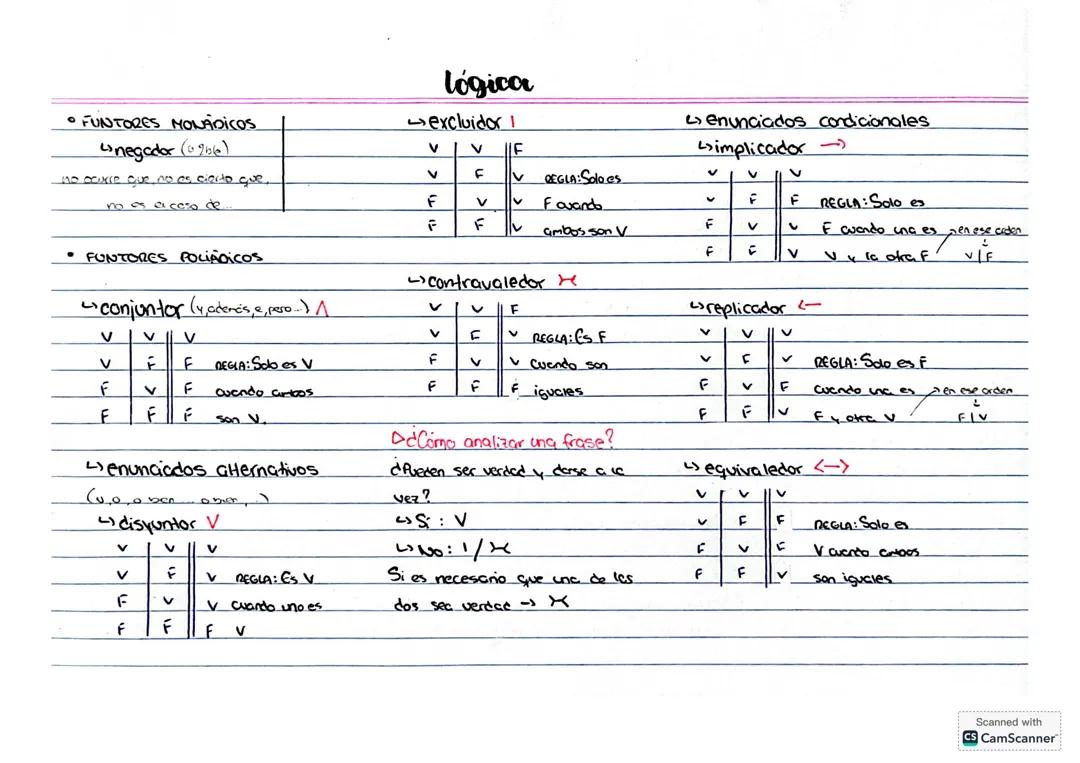 lógica
° FUNTORES MONÁDICOS
↳ negador
no ocurre que, no es cierto que,
no es el caso de...
• FUNTORES POLIÁDICOS
↳ conjuntor (y, además, e, pero...) ∧
V | V || V
V | F || F REGLA: Solo es V
F | V || F cuando ambos
F | F || F son V.
↳ enunciados alternativos
(u, o, o bien ... o bien, .)
↳ disyuntor V
V | V || V
V | F || V REGLA: Es V
F | V || V cuando uno es
F | F || F V
↳ excluidor |
V | V || F
V | F || V REGLA: Solo es
F | V || V F cuando
F | F || V ambos son V
↳ contravaledor ><
V | V || F
V | F || V REGLA: Es F
F | V || V cuando son
F | F || F iguales
▷ ¿Cómo analizar una frase?
¿Pueden ser verdad y darse a la
vez?
↳ Sí : V
↳ No: | / ><
Si es necesario que una de las
dos sea verdad → ><
↳ enunciados condicionales
↳ implicador →
V | V || V
V | F || F REGLA: Solo es
F | V || V F cuando una es → en ese orden
F | F || V V y la otra F V | F
↳ replicador ←
V | V || V
V | F || V REGLA: Solo es F
F | V || F cuando una es → en ese orden
F | F || V F y otra V F | V
↳ equivaledor <->
V | V || V
V | F || F REGLA: Solo es
F | V || F V cuando ambos
F | F || V son iguales
Scanned with
CS CamScanner